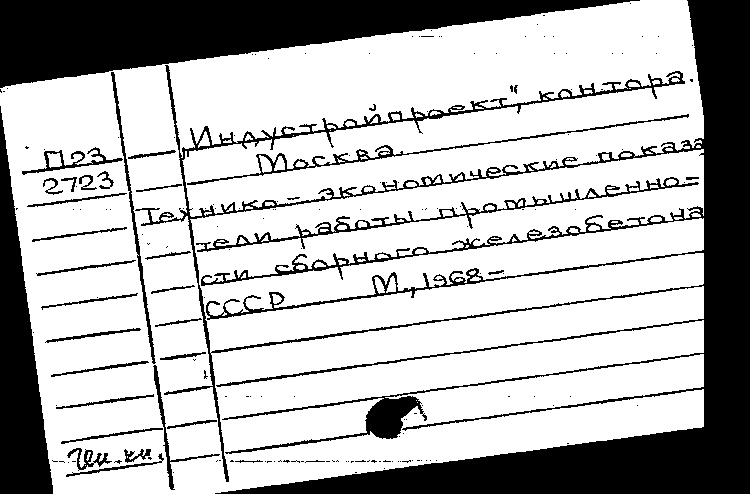 П23
2723
„Индустройпроект", контора.
Москва.
Технико-экономические показа
тели работы промышленно-
сти сборного железобетона
СССР М., 1968-